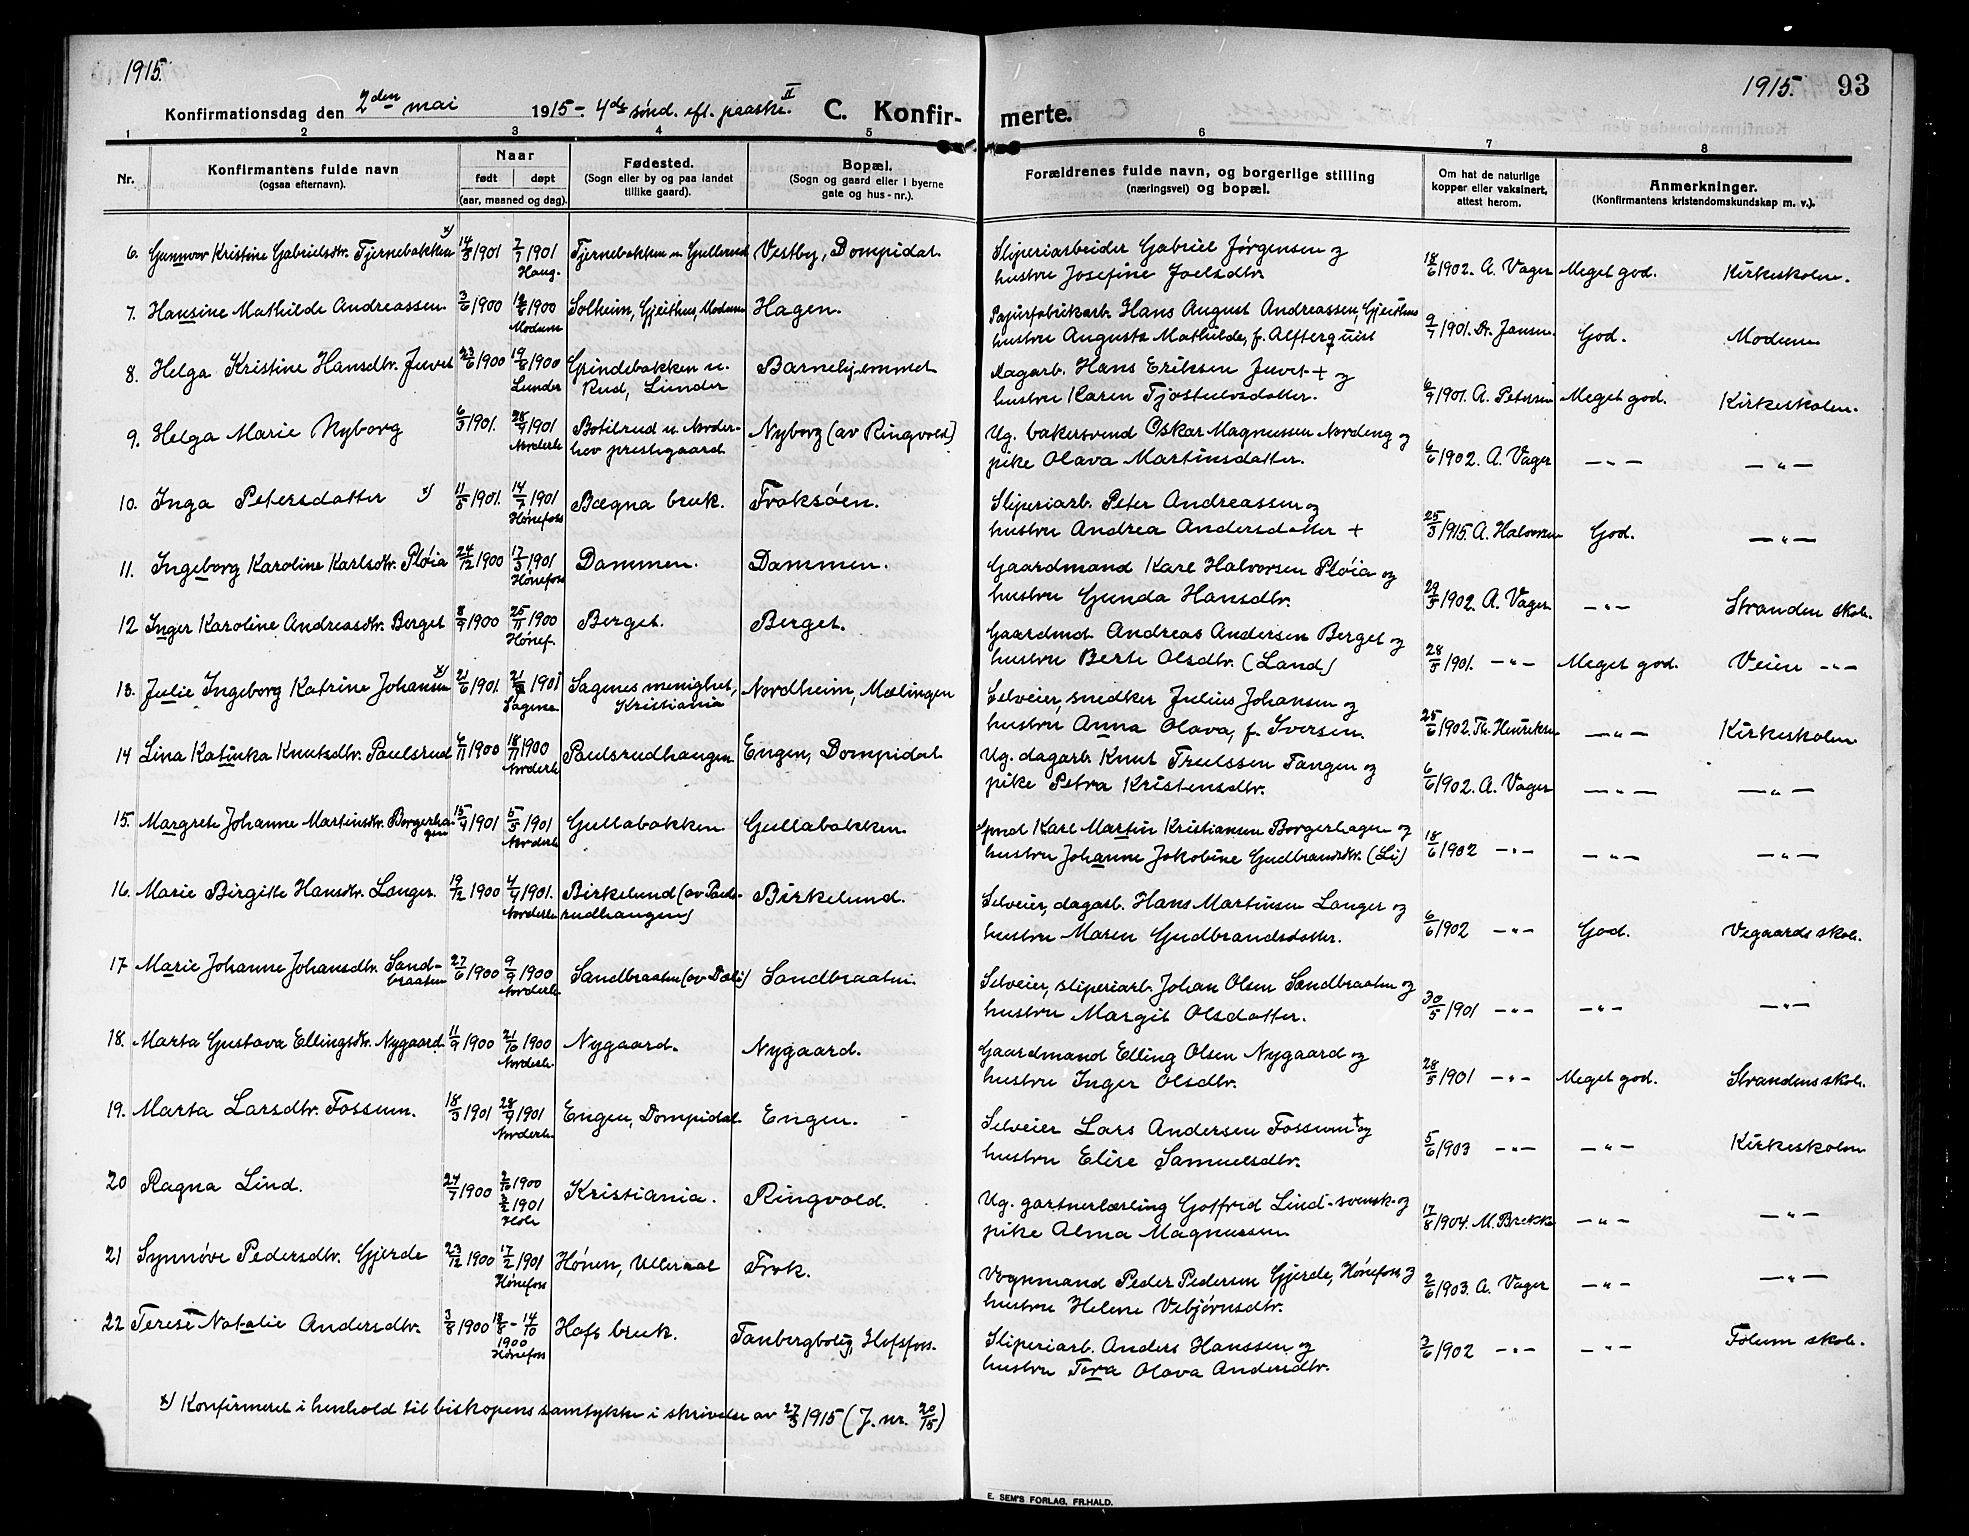 1915.
1915. 93
Konfirmationsdag den 2den mai 1915 - 4de sønd. eft. paaske. II C. Konfirmerte.
1 2 3 4 5 6 7 8
Nr.
Konfirmantens fulde navn
(ogsaa efternavn).
Naar
født døpt
(aar, maaned og dag).
Fødested.
(Sogn eller by og paa landet
tillike gaard).
Bopæl.
(Sogn og gaard eller i byerne
gate og hus-nr.).
Forældrenes fulde navn, og borgerlige stilling
(næringsvei) og bopæl.
Om hat de naturlige
kopper eller vaksinert,
attest herom.
Anmerkninger.
(Konfirmantens kristendomskundskap m. v.).
6. Gunnvor Kristine Gabrielsdtr. Tjernebakken x) 14/3 1901 7/7 1901 Tjernebakken u. Gullerud Vestby, Dompidal. Sliperiarbeider Gabriel Jørgensen og 18/6 1902. A. Vager Meget god. Kirkeskolen.
Haug. hustru Josefine Joelsdtr.
7. Hansine Mathilde Andreassen. 3/6 1900 12/8 1900 Solheim, Gjeithus, Modum Hagen. Papirfabrikarb. Hans August Andreassen, Gjeithus 9/7 1901. Dr. Jansen God. Modum
Modum hustru Augusta Mathilde, f. Alfterquist
8. Helga Kristine Hansdtr. Juvet 23/6 1900 19/8 1900 Grindebakken u. Barnehjemmet Dagarb. Hans Eriksen Juvet + og 6/9 1901. A. Petersen Meget god. Kirkeskolen.
Lunder Rud, Lunder hustru Karen Tjostulvsdatter.
9. Helga Marie Nyborg 6/3 1901. 28/4 1901 Botilrud u. Norder- Nyborg (av Ringvold) Ug. bakersvend Oskar Magnussen Nordeng og 6/6 1902. A. Vager — " — — " —
Norderh. hov prestegaard pike Olava Martinsdatter.
10. Inga Petersdatter x) 11/5 1901. 14/7 1901 Bægna bruk. Froksøen. Sliperiarb. Peter Andreassen og 25/3 1915. A. Halvorsen God. — " —
Hønefoss hustru Andrea Andersdatter +
11. Ingeborg Karoline Karlsdtr. Pløia 24/12 1900 17/3 1901 Dammen. Dammen. Gaardmand Karl Halvorsen Pløia og 29/5 1902. A. Vager — " — Stranden skole.
Hønefoss hustru Gunda Hansdtr.
12 Inger Karoline Andreasdtr. Berget 8/9 1900 25/11 1900 Berget. Berget. Gaardmd. Andreas Andersen Berget og 28/5 1901. — " — Meget god. Veien — " —
Hønef. hustru Berte Olsdtr. (Land)
13. Julie Ingeborg Katrine Johansen x) 21/6 1901. 21/7 1901 Sagenes menighet, Nordheim, Mælingen Selveier, snedker Julius Johansen og 25/6 1902. Th. Henriksen — " — Kirkeskolen
Sagene Kristiania hustru Anna Olava, f. Iversen.
14 Lina Katinka Knutsdtr. Paulsrud 6/11 1900 18/11 1900 Paulsrudhaugen Engen, Dompidal Ug. dagarb. Knut Trulssen Tangen og 6/6 1902. A. Vager — " — — " —
Norderh. pike Petra Kristensdtr.
15. Margrete Johanne Martinsdtr. Borgerha- 15/4 1901 5/5 1901 Gullabakken Gullabakken. Karl Martin Kristiansen Borgerhagen og 18/6 1902 — " — — " — — " —
gen Norderh. hustru Johanne Jokobine Gudbrandsdtr. (Li)
16. Marie Birgitte Hansdtr. Langer. 19/12 1900 4/4 1901. Birkelund (av Pauls- Birkelund. Selveier, dagarb. Hans Martinsen Langer og 6/6 1902 — " — God. Vegaards skole.
Norderh. rudhaugen) hustru Maren Gudbrandsdatter.
17 Marie Johanne Johansdtr. Sand- 27/6 1900 9/9 1900 Sandbraaten (av Dæli) Sandbraaten. Selveier, sliperiarb. Johan Olsen Sandbraaten og 30/5 1901 — " — — " — — " —
braaten Norderh. hustru Margit Olsdatter.
18. Marta Gustava Ellingsdtr. Nygaard. 11/9 1900 21/10 1900 Nygaard. Nygaard. Gaardmand Elling Olsen Nygaard og 28/5 1901 — " — Meget god. Strandens skole.
Norderh. hustru Inger Olsdtr.
19. Marta Larsdtr. Fossum. 18/3 1901 28/4 1901 Engen, Dompidal Engen. Selveier Lars Andersen Fossum + og 5/6 1903 — " — — " — Kirkeskolen
Norderh. hustru Elise Samuelsdtr.
20 Ragna Lind. 24/7 1900 2/10 1900 Kristiania. Ringvold. Ug. gartnerlærling Gotfred Lind - svensk - og 17/8 1904. M. Brekke — " — — " —
2/2 1901 Hole pike Alma Magnussen
21 Synnøve Pedersdtr. Gjerde 23/12 1900 17/2 1901 Hønen, Ulleraal Frok. Vognmand Peder Pedersen Gjerde, Hønefoss og 2/6 1903. A. Vager — " — — " —
Hønefoss hustru Helene Vebjørnsdtr.
22 Terese Natalie Andersdtr. 3/8 1900 18/8 - 14/10 Hofs bruk. Tanbergbolig, Hofsfoss. Sliperiarb. Anders Hanssen og 3/6 1902 — " — — " — Follum skole.
1900 Hønefoss hustru Tora Olava Andersdtr.
x) Konfirmeret i henhold til biskopens samtykke i skrivelse av 27/3 1915 (J. nr. 20/15)
E. SEM'S FORLAG, FR.HALD.